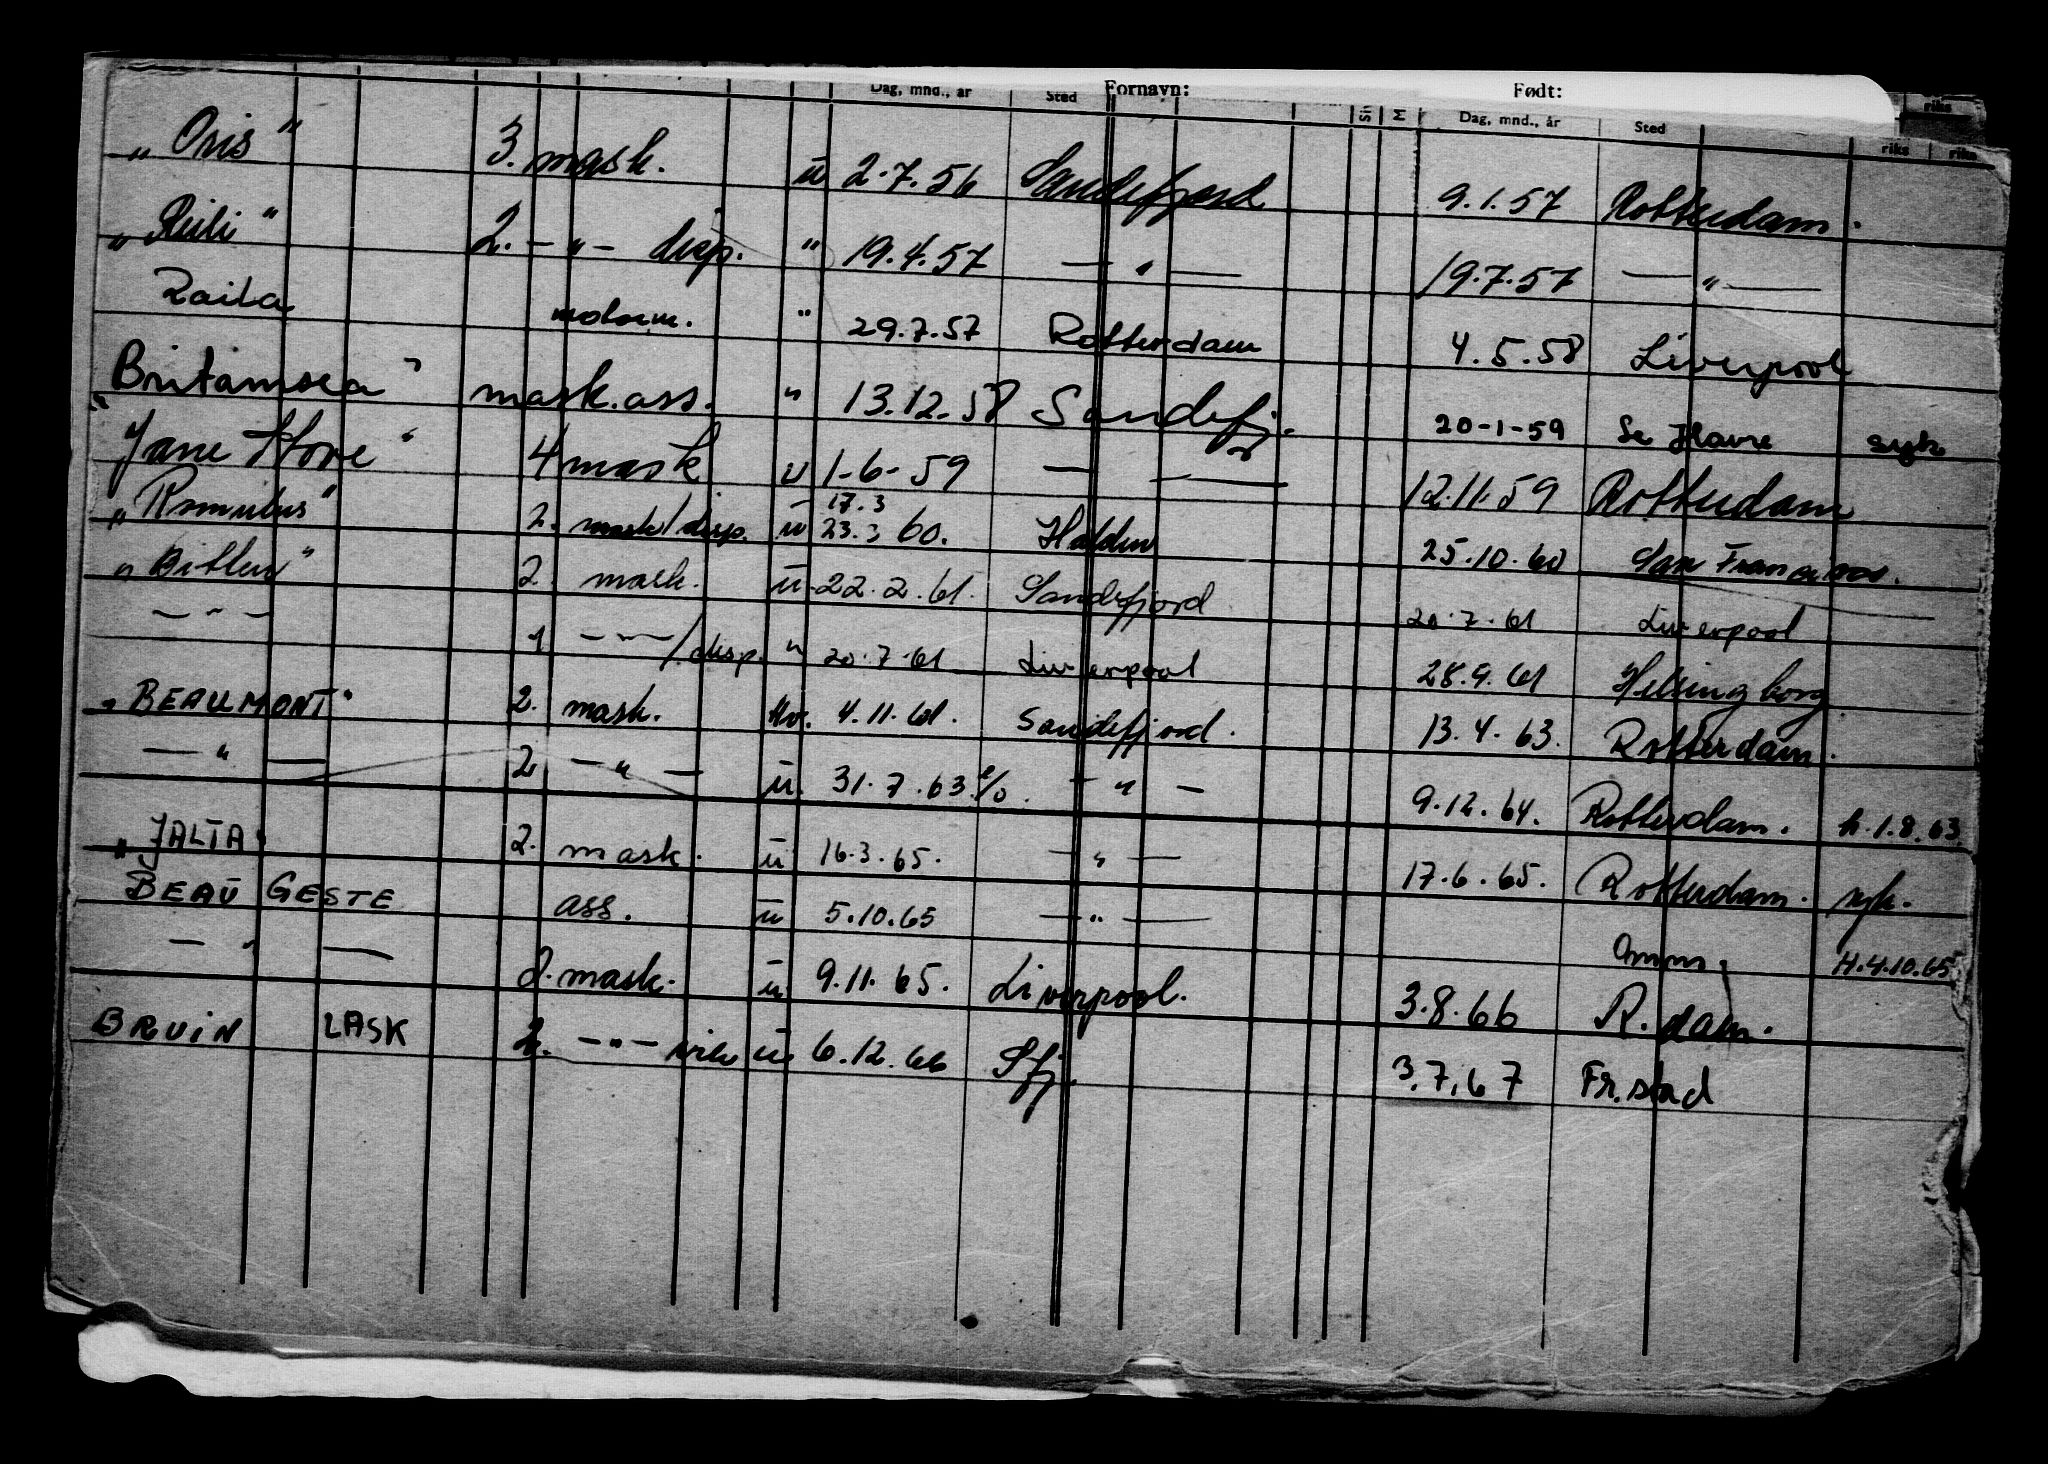 Fornavn: Født:
Dag, mnd., år Sted M Dag, mnd., år Sted riks riks
„Oris" 3. mask. u 2.7.56 Sandefjord 9.1.57 Rotterdam.
2. — " — disp. " 19.4.57 — " — 19.7.57 — " —
Raila motorm. " 29.7.57 Rotterdam 4.5.58 Liverpool
„Britamsea" mask.ass. " 13.12.58 Sandefj. 20-1-59 Le Havre syk
Jane Stove" 4 mask u 1-6-59 — — 12.11.59 Rotterdam
17.3
„Romulus" 2. mask/disp. u 23.3 60. Halden 25.10.60 San Francisco.
„Bitten" 2. mask. u 22.2.61. Sandefjord 20.7.61 Liverpool
— " — 1 — " — /disp. " 20.7.61 Liverpool 28.9.61 Helsingborg
„BEAUMONT" 2. mask. 4.11.61. Sandefjord. 13.4.63. Rotterdam.
— " — 2 — " — u. 31.7.63. — " — 9.12.64. Rotterdam. h.1.8.63
„JALTA" 2. mask. u 16.3.65. — " — 17.6.65. Rotterdam. syk.
BEAU GESTE ass. u 5.10.65 — " — Omm. H.4.10.65
— " — 2. mask. u. 9.11.65. Liverpool. 3.8.66 R.dam.
BRUIN LASK 2. — " — u. 6.12.66 Sfj. 3.7.67 Fr.stad